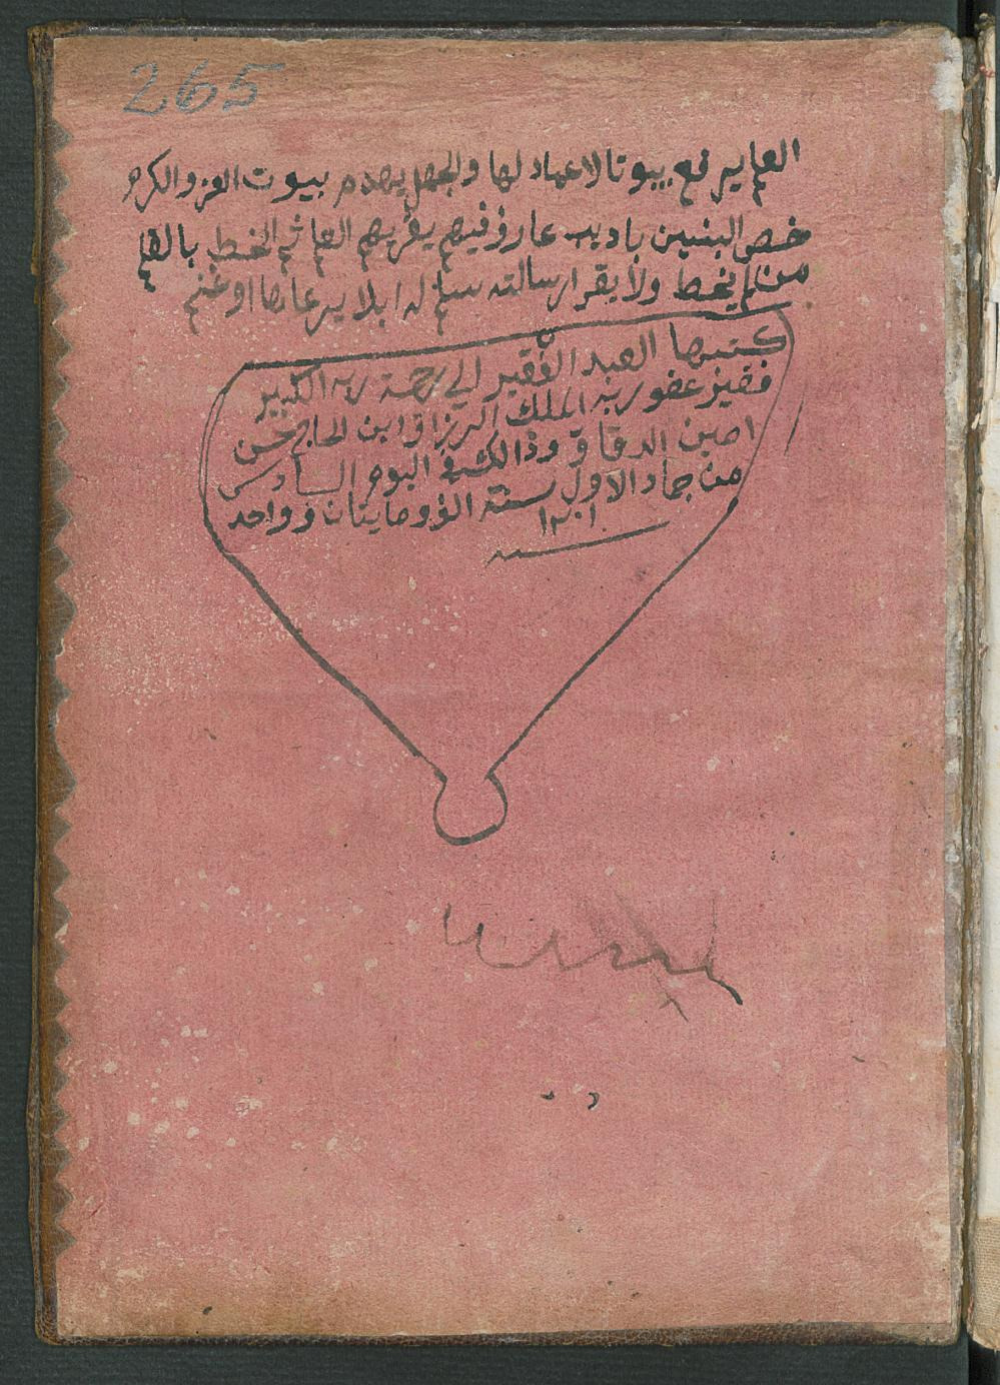 265
العلم يرفع بيوتا لا عماد لها والجهل يهدم بيوت العز والكرم
خص البنين باديب عارف فيهم يقريهم العلم ثم الخط بالقلم
من لم يخط ولا يقرا رسالته سلم له ابلا يرعاها او غنم
كتبها العبد الفقير الى رحمة ربه الكبير
فقير عفو ربه الملك الرزاق ابن الحاج حسن
امين الدقاق وذالك في اليوم السادس
من جماد الاول سنة الف ومايتان وواحد
١٢٠١